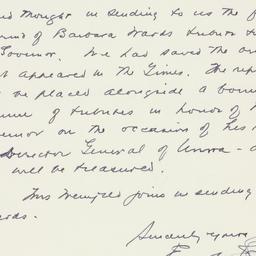 thought in sending to us the
of Barbara Ward's tribute to
Governor. We had saved the
appeared in the Times. The
be placed alongside a
of tributes in honor of
on the occasion of his
Director General of Unrra -
will be treasured.
Mrs joins in sending
Sincerely yours